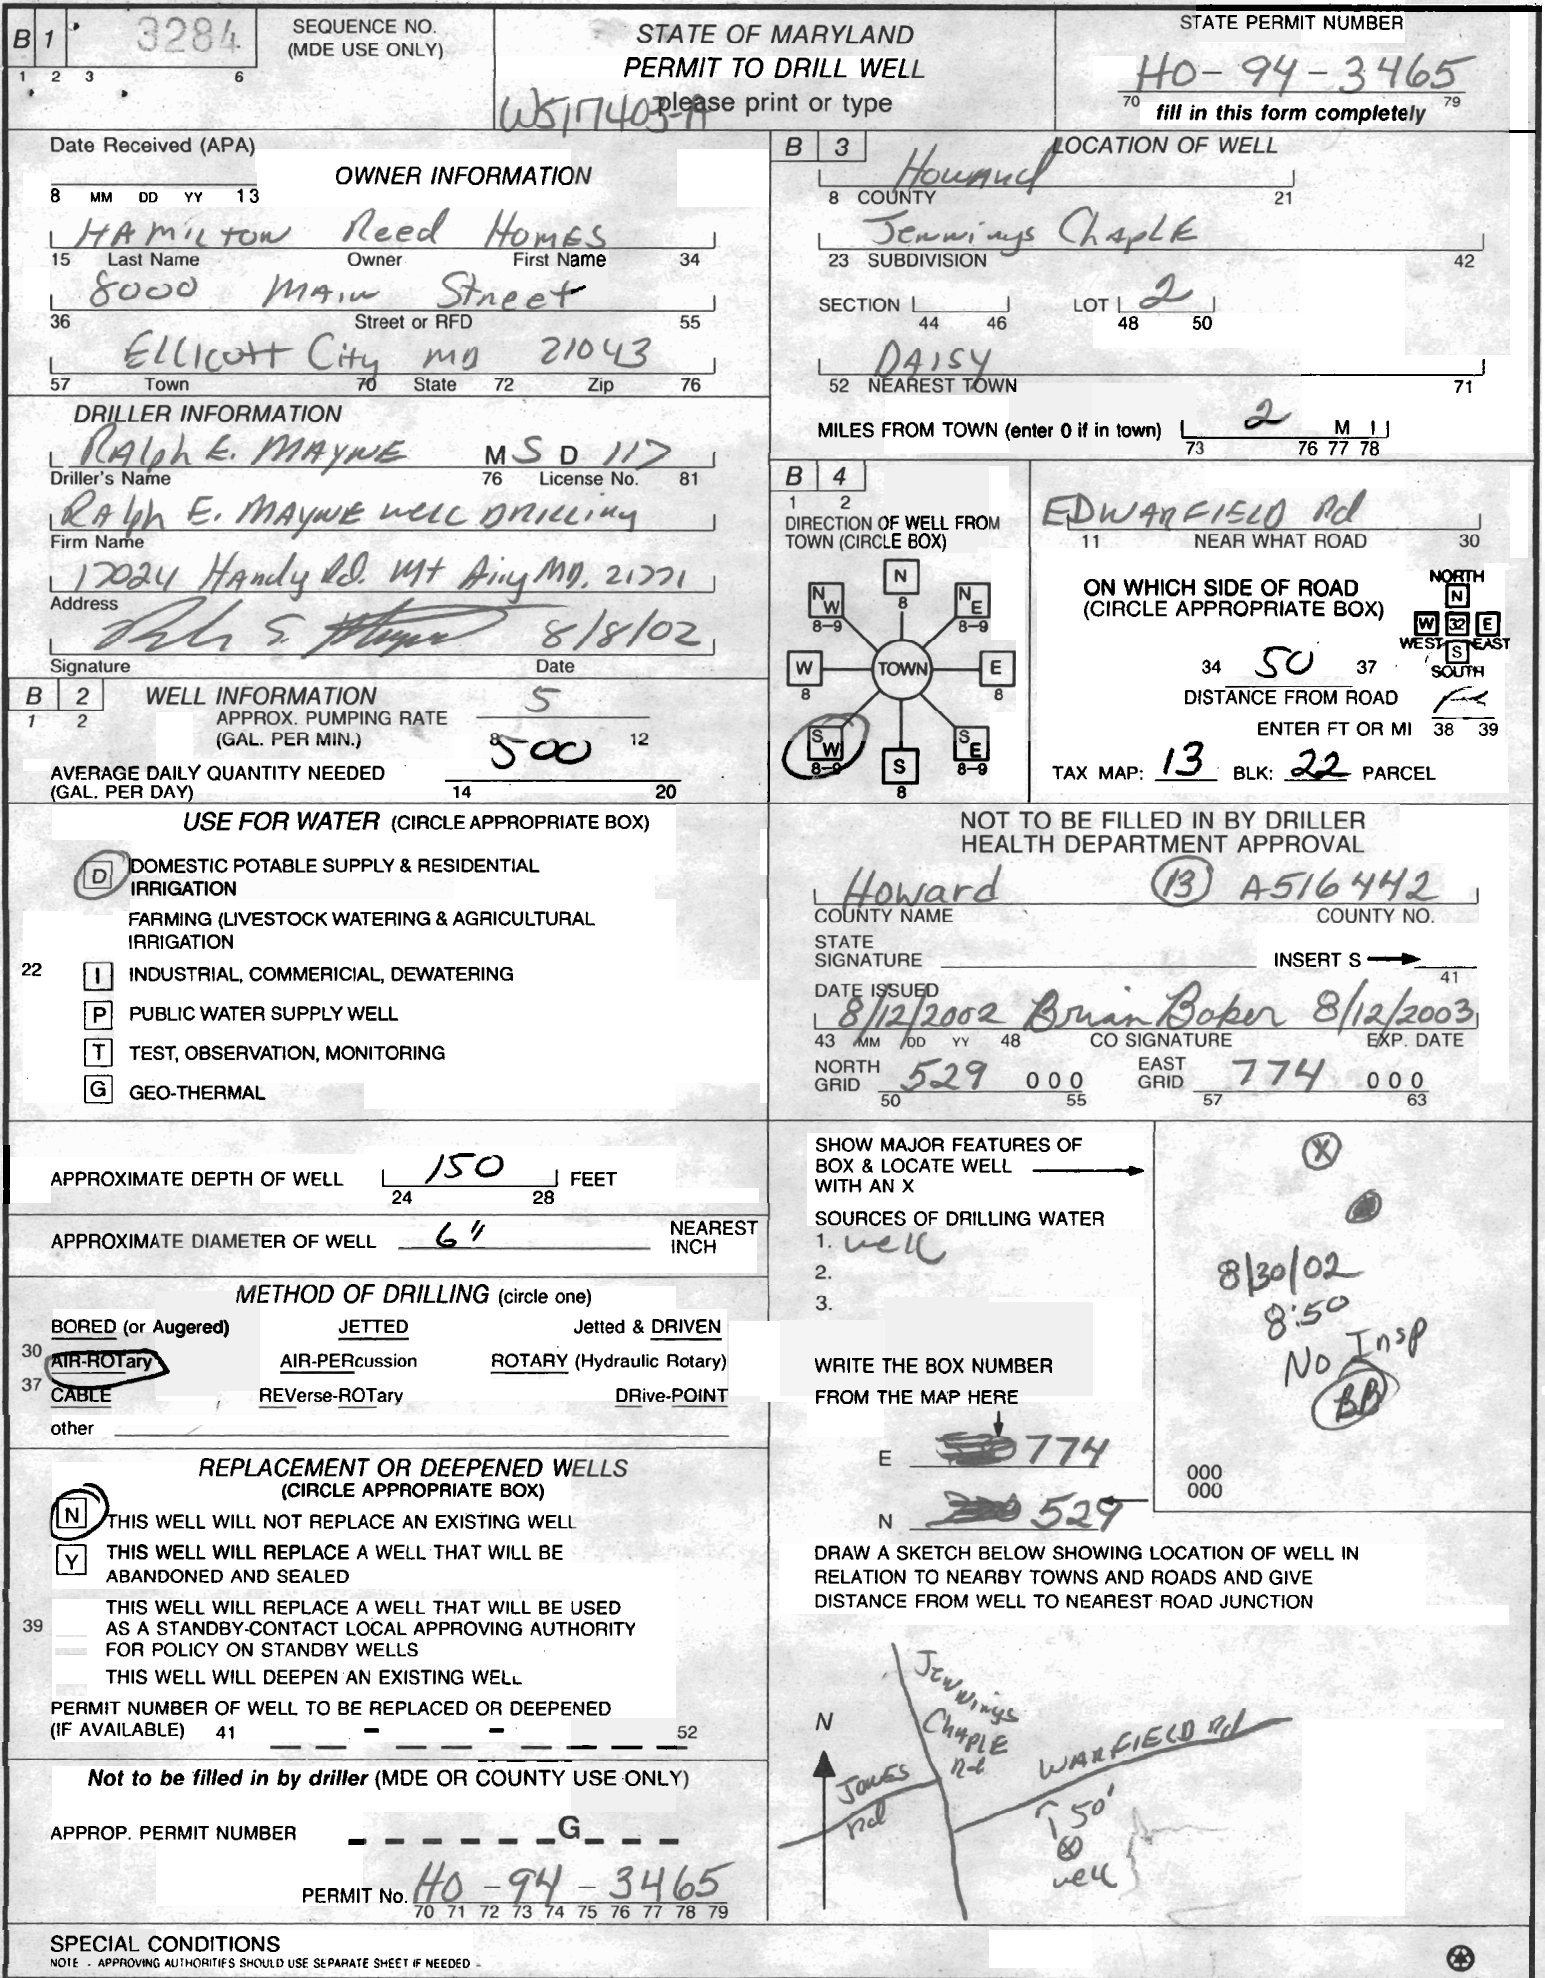 B 1 3284
1 2 3 6
SEQUENCE NO.
(MDE USE ONLY)
STATE OF MARYLAND
PERMIT TO DRILL WELL
please print or type
WS17403-A
STATE PERMIT NUMBER
HO-94-3465
70 79
fill in this form completely
Date Received (APA)
8 MM DD YY 13
OWNER INFORMATION
HAMILTON Reed HOMES
15 Last Name Owner First Name 34
8000 MAIN Street
36 Street or RFD 55
Ellicott City MD 21043
57 Town 70 State 72 Zip 76
DRILLER INFORMATION
RAlph E. MAYNE M S D 117
Driller's Name 76 License No. 81
RAlph E. MAYNE well DRilling
Firm Name
17024 Handy Rd. Mt Airy MD. 21771
Address
8/8/02
Signature Date
B 2 WELL INFORMATION
1 2
APPROX. PUMPING RATE 5
(GAL. PER MIN.) 8 12
AVERAGE DAILY QUANTITY NEEDED 500
(GAL. PER DAY) 14 20
USE FOR WATER (CIRCLE APPROPRIATE BOX)
D DOMESTIC POTABLE SUPPLY & RESIDENTIAL
IRRIGATION
FARMING (LIVESTOCK WATERING & AGRICULTURAL
IRRIGATION
22 I INDUSTRIAL, COMMERICIAL, DEWATERING
P PUBLIC WATER SUPPLY WELL
T TEST, OBSERVATION, MONITORING
G GEO-THERMAL
APPROXIMATE DEPTH OF WELL 150 FEET
24 28
APPROXIMATE DIAMETER OF WELL 6" NEAREST
INCH
METHOD OF DRILLING (circle one)
BORED (or Augered) JETTED Jetted & DRIVEN
30 AIR-ROTary AIR-PERcussion ROTARY (Hydraulic Rotary)
37 CABLE REVerse-ROTary DRive-POINT
other
REPLACEMENT OR DEEPENED WELLS
(CIRCLE APPROPRIATE BOX)
N THIS WELL WILL NOT REPLACE AN EXISTING WELL
Y THIS WELL WILL REPLACE A WELL THAT WILL BE
ABANDONED AND SEALED
THIS WELL WILL REPLACE A WELL THAT WILL BE USED
39 AS A STANDBY-CONTACT LOCAL APPROVING AUTHORITY
FOR POLICY ON STANDBY WELLS
THIS WELL WILL DEEPEN AN EXISTING WELL
PERMIT NUMBER OF WELL TO BE REPLACED OR DEEPENED
(IF AVAILABLE) 41 - - 52
Not to be filled in by driller (MDE OR COUNTY USE ONLY)
APPROP. PERMIT NUMBER G
PERMIT No. HO-94-3465
70 71 72 73 74 75 76 77 78 79
SPECIAL CONDITIONS
NOTE - APPROVING AUTHORITIES SHOULD USE SEPARATE SHEET IF NEEDED -
B 3 LOCATION OF WELL
Howard
8 COUNTY 21
Jennings Chaple
23 SUBDIVISION 42
SECTION LOT 2
44 46 48 50
DAISY
52 NEAREST TOWN 71
MILES FROM TOWN (enter 0 if in town) 2 M I
73 76 77 78
B 4
1 2
DIRECTION OF WELL FROM
TOWN (CIRCLE BOX)
N
8
NW
8-9
NE
8-9
W
8
TOWN
E
8
SW
8-9
S
8
SE
8-9
EDWARFIELD Rd
11 NEAR WHAT ROAD 30
ON WHICH SIDE OF ROAD
(CIRCLE APPROPRIATE BOX)
NORTH
N
W 32 E
WEST EAST
S
SOUTH
34 50 37
DISTANCE FROM ROAD
ENTER FT OR MI 38 39
TAX MAP: 13 BLK: 22 PARCEL
NOT TO BE FILLED IN BY DRILLER
HEALTH DEPARTMENT APPROVAL
Howard 13 A516442
COUNTY NAME COUNTY NO.
STATE
SIGNATURE INSERT S
41
DATE ISSUED
8/12/2002 Brian Baker 8/12/2003
43 MM DD YY 48 CO SIGNATURE EXP. DATE
NORTH
GRID 529 000
50 55
EAST
GRID 774 000
57 63
SHOW MAJOR FEATURES OF
BOX & LOCATE WELL
WITH AN X
X
SOURCES OF DRILLING WATER
1. well
2.
3.
8/30/02
8:50
No Insp
BB
WRITE THE BOX NUMBER
FROM THE MAP HERE
E 774
N 529
000
000
DRAW A SKETCH BELOW SHOWING LOCATION OF WELL IN
RELATION TO NEARBY TOWNS AND ROADS AND GIVE
DISTANCE FROM WELL TO NEAREST ROAD JUNCTION
N
Jennings
Chaple
Rd
WARFIELD Rd
Jones
Rd
50'
well